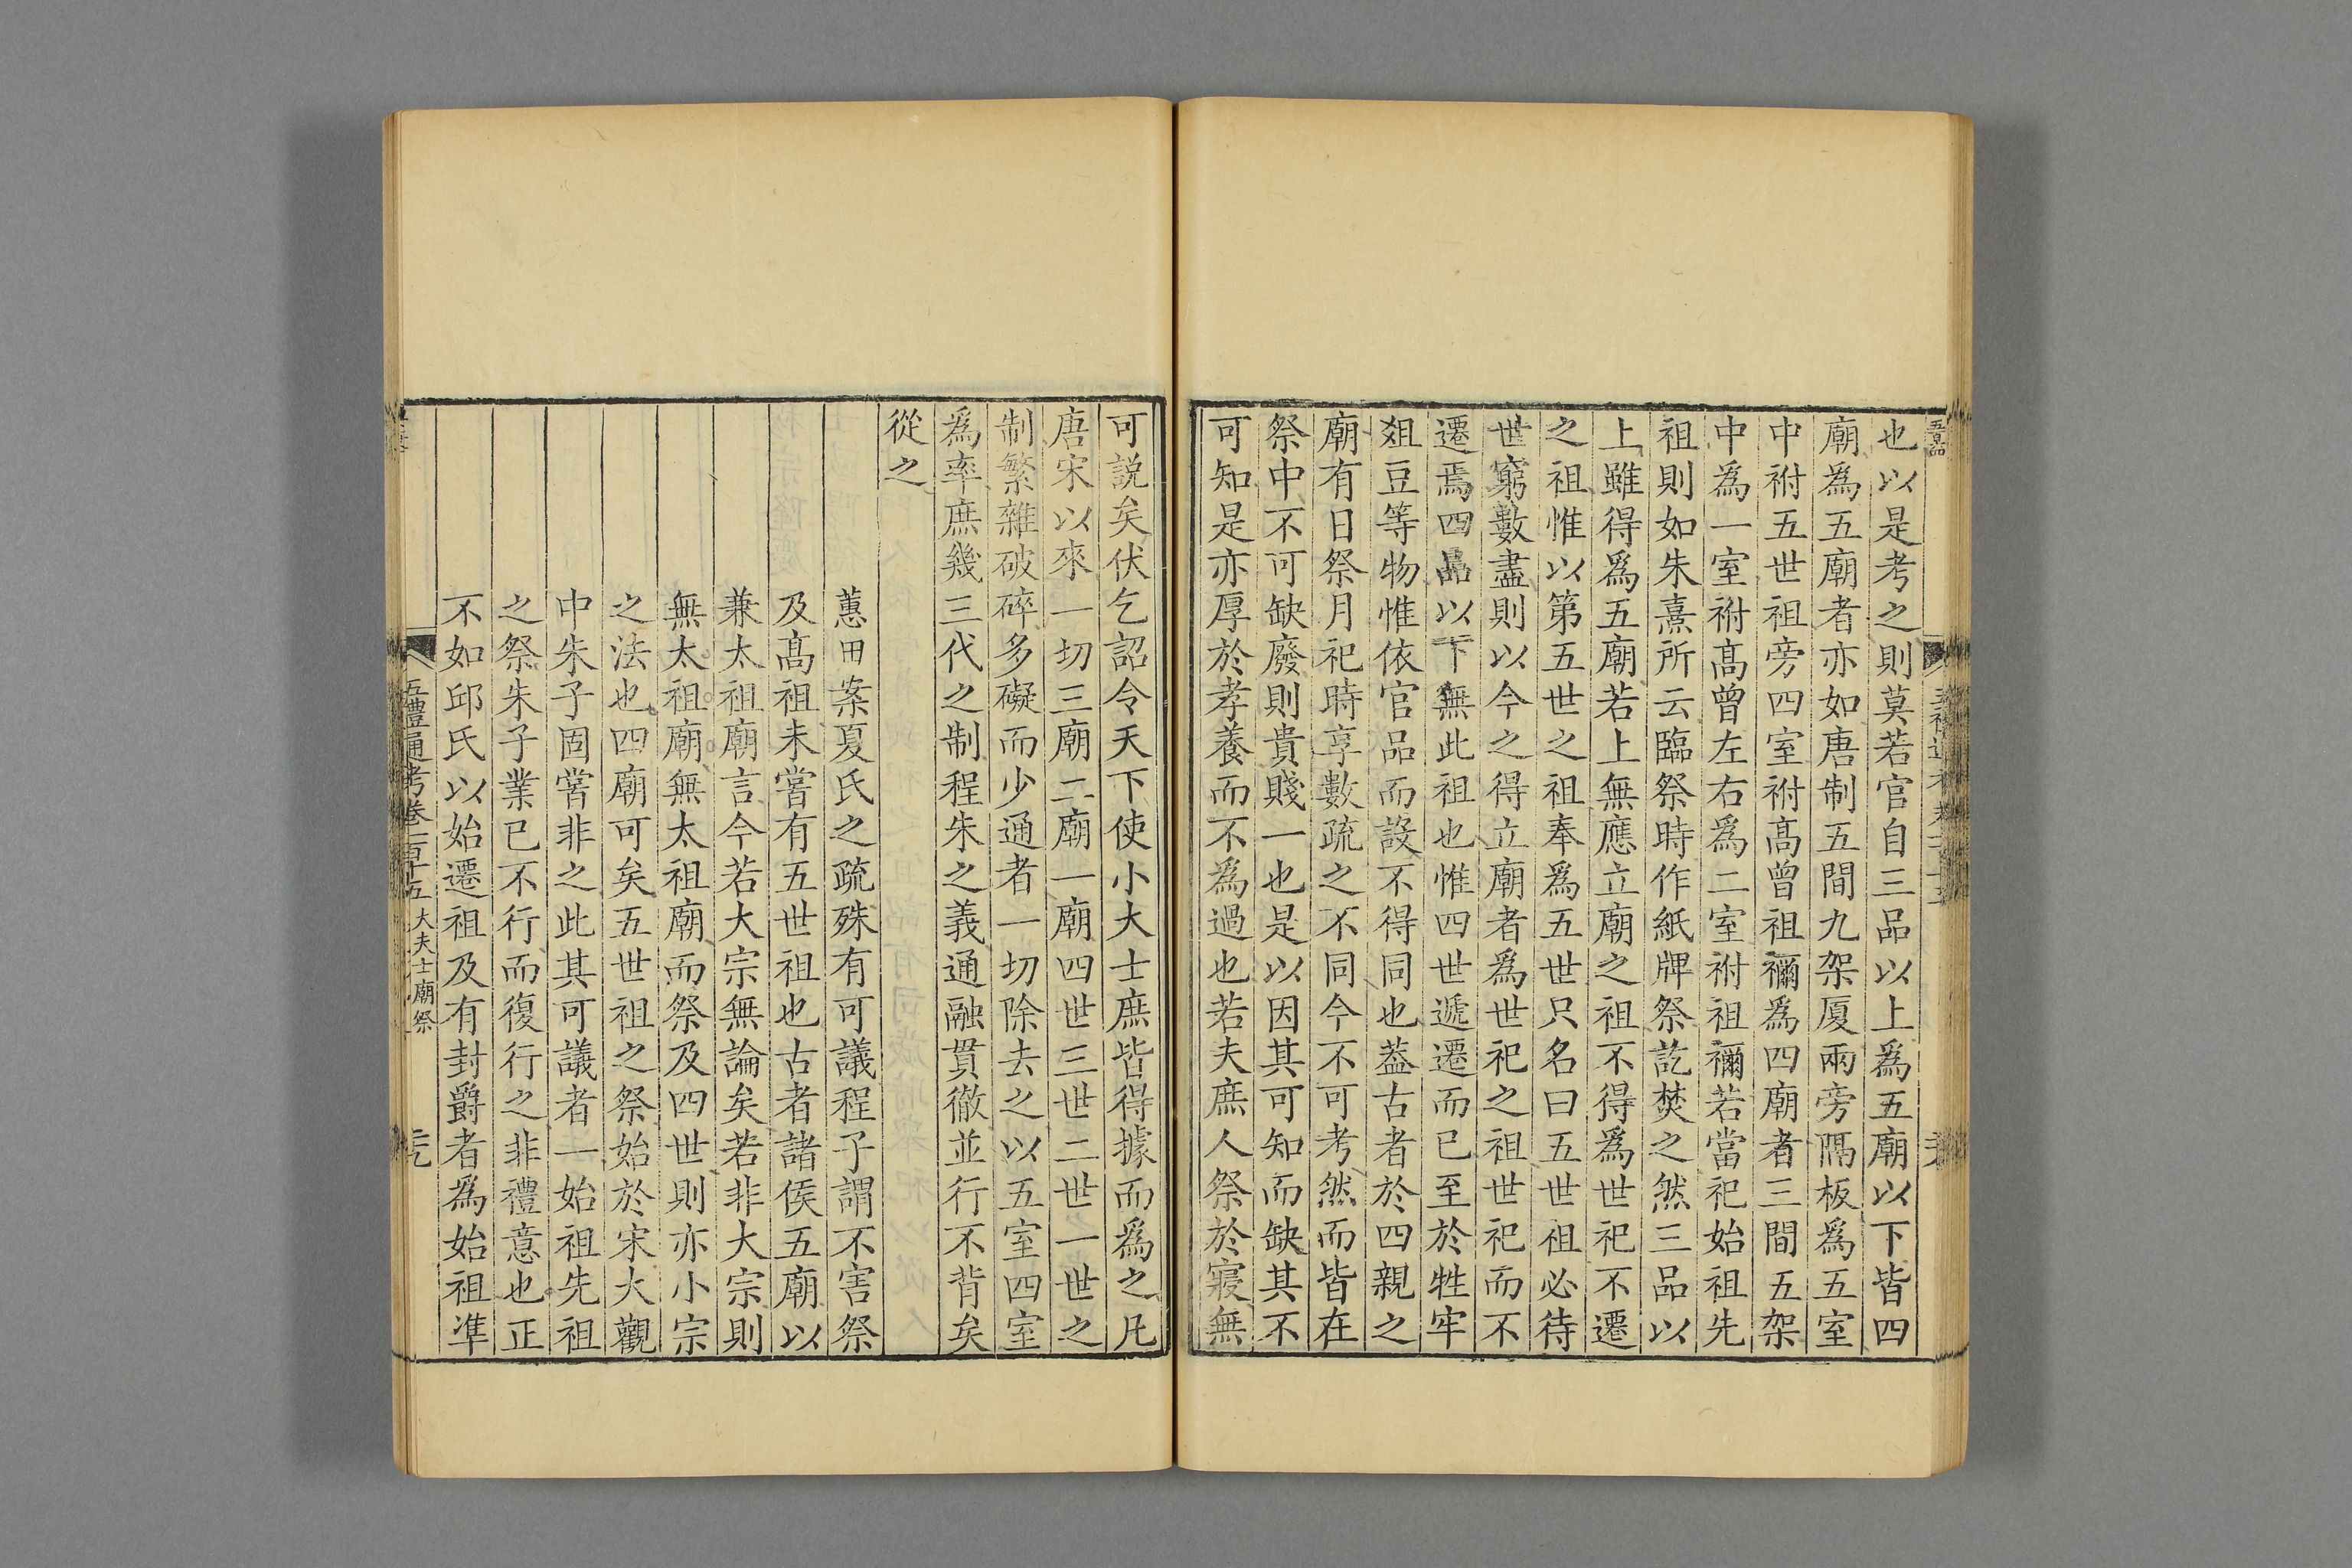 也以是考之則莫若官自三品以上爲五廟以下皆四
廟爲五廟者亦如唐制五間九架厦兩旁隔板爲五室
中祔五世祖旁四室祔髙曾祖禰爲四廟者三間五架
中爲一室祔髙曾左右爲二室祔祖禰若當祀始祖先
祖則如朱熹所云臨祭時作紙牌祭訖焚之然三品以
上雖得爲五廟若上無應立廟之祖不得爲世祀不遷
之祖惟以第五世之祖奉爲五世只名曰五世祖必待
世窮數盡則以今之得立廟者爲世祀之祖世祀而不
遷焉四品以下無此祖也惟四世遞遷而已至於牲牢
爼豆等物惟依官品而設不得同也葢古者於四親之
廟有日祭月祀時享數疏之不同今不可考然而皆在
祭中不可缺廢則貴賤一也是以因其可知而缺其不
可知是亦厚於孝養而不為過也若夫庶人祭於寢無
可説矣伏乞詔令天下使小大士庶皆得據而爲之凡
唐宋以來一切三廟二廟一廟四世三世二世一世之
制繁雜破碎多礙而少通者一切除去之以五室四室
爲率庶幾三代之制程朱之義通融貫徹並行不背矣
從之
蕙田案夏氏之疏殊有可議程子謂不害祭
及髙祖未嘗有五世祖也古者諸侯五廟以
兼太祖廟言今若大宗無論矣若非大宗則
無太祖廟無太祖廟而祭及四世則亦小宗
之法也四廟可矣五世祖之祭始於宋大觀
中朱子固嘗非之此其可議者一始祖先祖
之祭朱子業已不行而復行之非禮意也正
不如邱氏以始遷祖及有封爵者為始祖準
五禮通考卷一百十五 大夫士廟祭